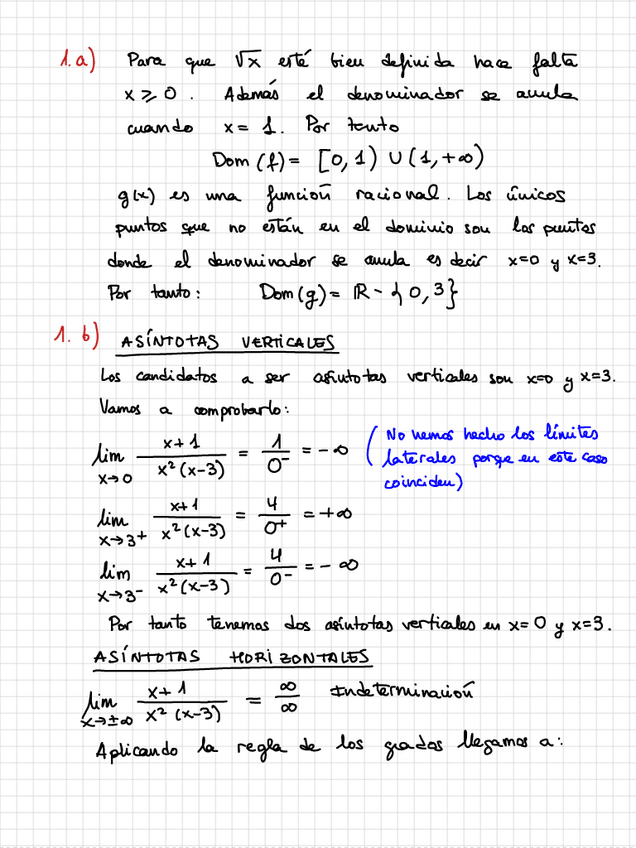 1.a) Para que √x esté bien definida hace falta
x ⩾ 0. Además el denominador se anula
cuando x = 1. Por tanto
Dom (f) = [0, 1) ∪ (1, +∞)
g(x) es una función racional. Los únicos
puntos que no están en el dominio son los puntos
donde el denominador se anula es decir x=0 y x=3.
Por tanto: Dom(g) = ℝ - {0, 3}
1. b) ASÍNTOTAS VERTICALES
Los candidatos a ser asíntotas verticales son x=0 y x=3.
Vamos a comprobarlo:
lim x→0 (x+1)/(x²(x-3)) = 1/0⁻ = -∞ (No hemos hecho los límites
laterales porque en este caso
coinciden)
lim x→3⁺ (x+1)/(x²(x-3)) = 4/0⁺ = +∞
lim x→3⁻ (x+1)/(x²(x-3)) = 4/0⁻ = -∞
Por tanto tenemos dos asíntotas verticales en x=0 y x=3.
ASÍNTOTAS HORIZONTALES
lim x→±∞ (x+1)/(x²(x-3)) = ∞/∞ Indeterminación
Aplicando la regla de los grados llegamos a: